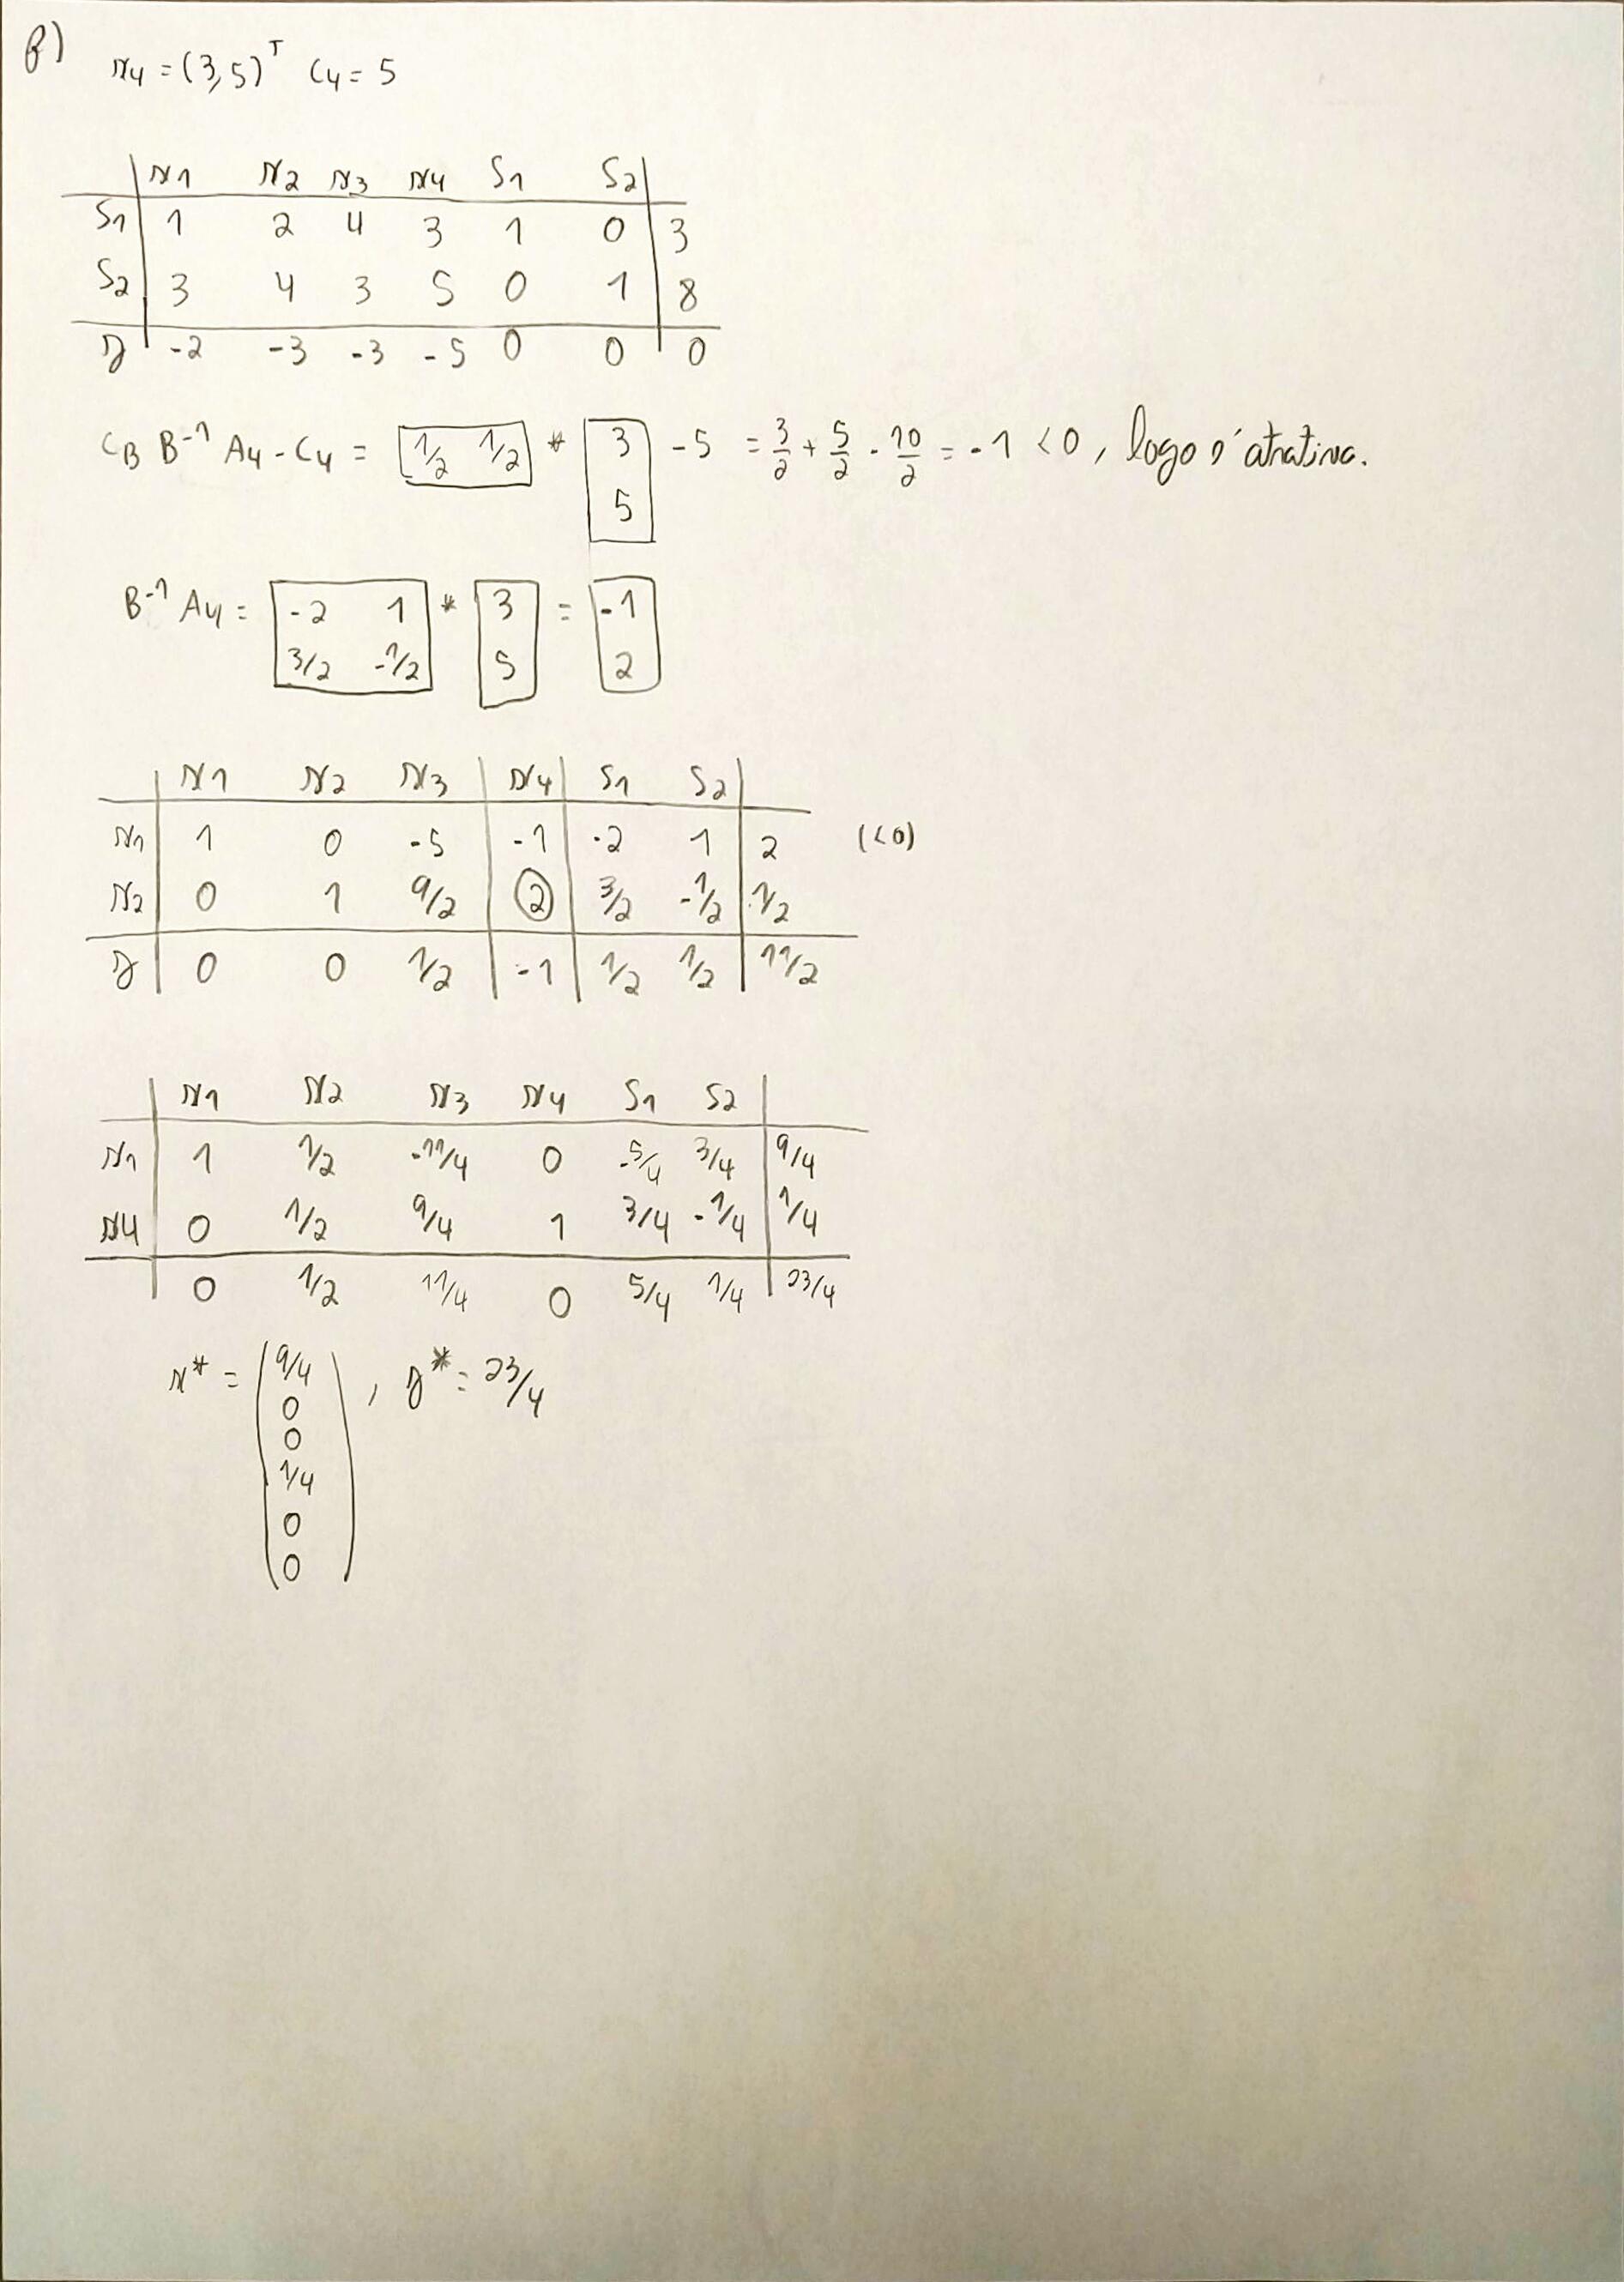 f)
x4 = (3,5)^T C4 = 5
x1 x2 x3 x4 S1 S2
S1 1 2 4 3 1 0 3
S2 3 4 3 5 0 1 8
z -2 -3 -3 -5 0 0 0
CB B^-1 A4 - C4 = 1/2 1/2 * 3 5 - 5 = 3/2 + 5/2 - 10/2 = -1 < 0, logo é atrativa.
B^-1 A4 = -2 1 3/2 -1/2 * 3 5 = -1 2
x1 x2 x3 x4 S1 S2
x1 1 0 -5 -1 -2 1 2 (<0)
x2 0 1 9/2 2 3/2 -1/2 1/2
z 0 0 1/2 -1 1/2 1/2 11/2
x1 x2 x3 x4 S1 S2
x1 1 1/2 -11/4 0 -5/4 3/4 9/4
x4 0 1/2 9/4 1 3/4 -1/4 1/4
0 1/2 11/4 0 5/4 1/4 23/4
x* = (9/4 0 0 1/4 0 0), z* = 23/4